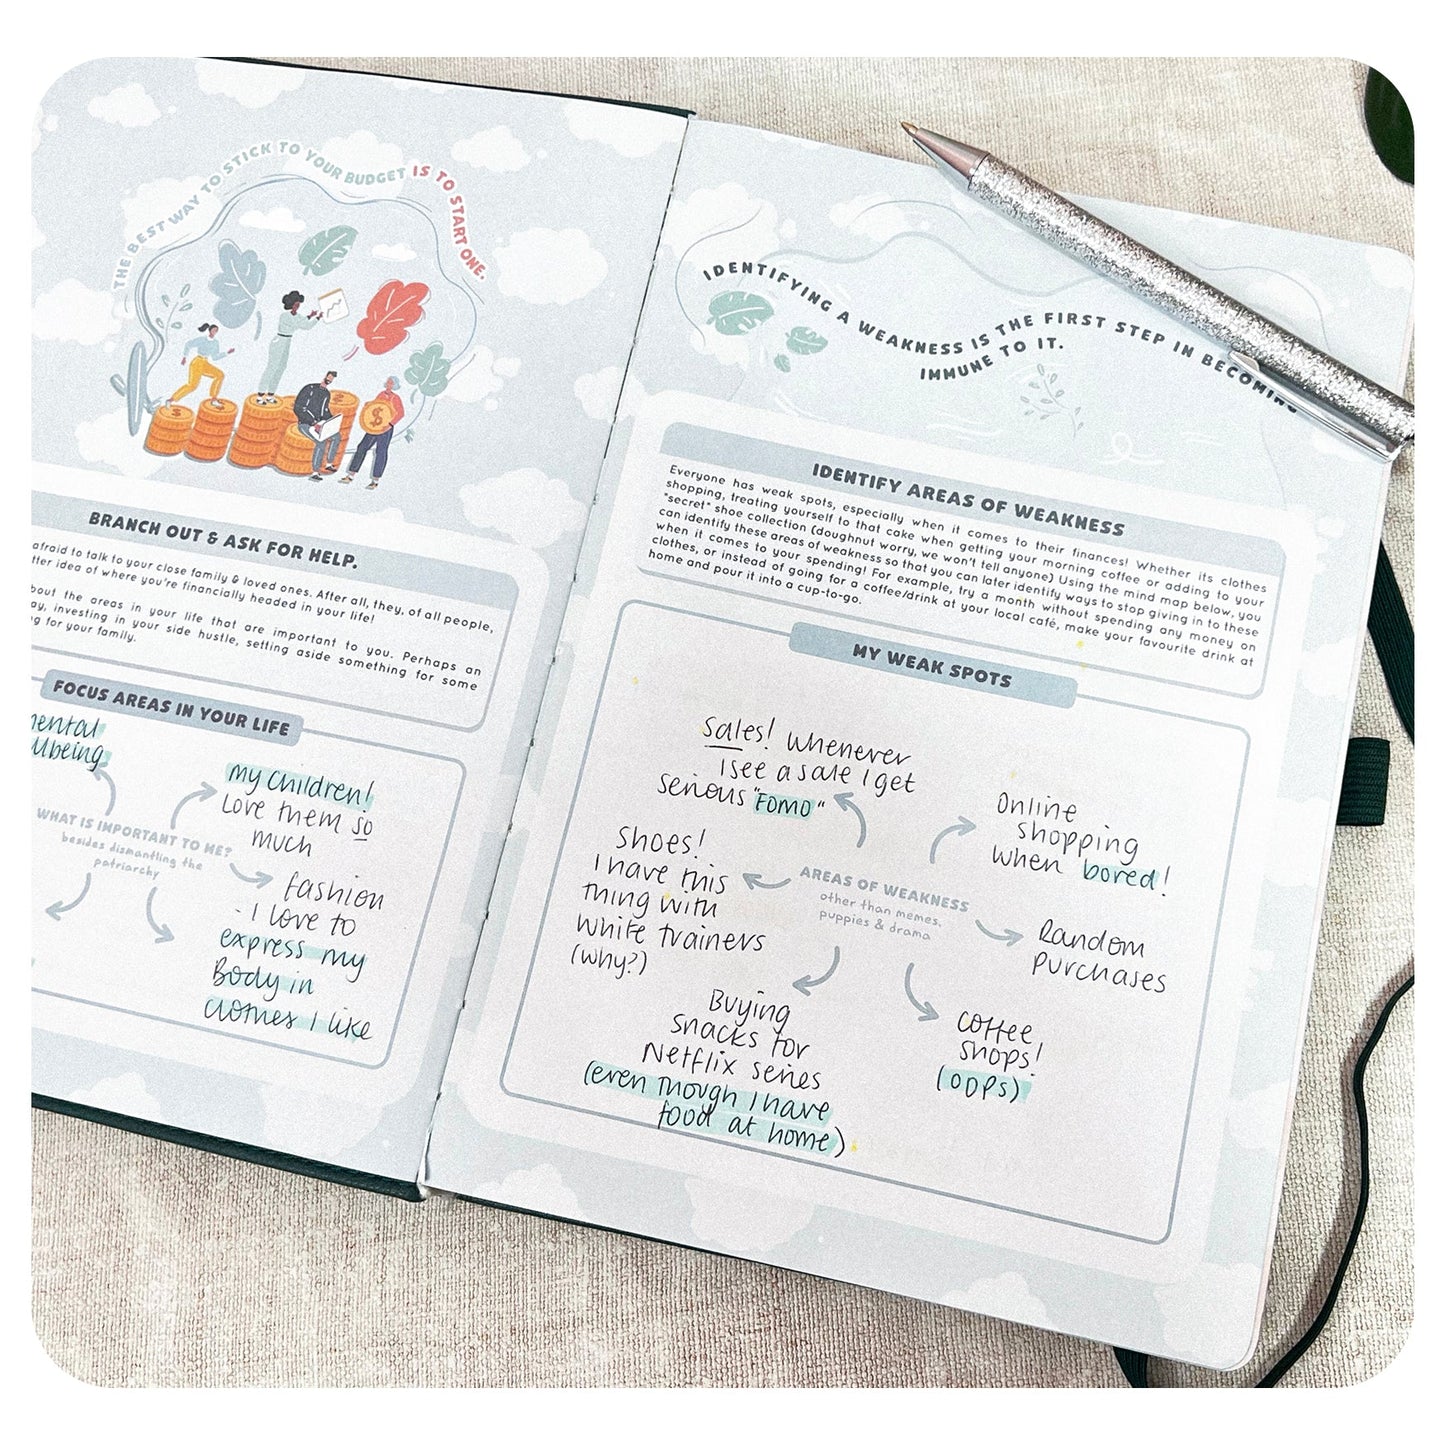 THE BEST WAY TO STICK TO YOUR BUDGET IS TO START ONE.
BRANCH OUT & ASK FOR HELP.
afraid to talk to your close family & loved ones. After all, they, of all people,
idea of where you're financially headed in your life!
the areas in your life that are important to you. Perhaps an
investing in your side hustle, setting aside something for some
for your family.
FOCUS AREAS IN YOUR LIFE
my children!
Love them so
much
WHAT IS IMPORTANT TO ME?
besides dismantling the
patriarchy
fashion
- I love to
express my
Body in
clothes I like
IDENTIFYING A WEAKNESS IS THE FIRST STEP IN BECOMING
IMMUNE TO IT.
IDENTIFY AREAS OF WEAKNESS
Everyone has weak spots, especially when it comes to their finances! Whether its clothes
shopping, treating yourself to that cake when getting your morning coffee or adding to your
"secret" shoe collection (doughnut worry, we won't tell anyone) Using the mind map below, you
can identify these areas of weakness so that you can later identify ways to stop giving in to these
when it comes to your spending! For example, try a month without spending any money on
clothes, or instead of going for a coffee/drink at your local café, make your favourite drink at
home and pour it into a cup-to-go.
MY WEAK SPOTS
Sales! Whenever
I see a sale I get
serious "FOMO"
Online
shopping
when bored!
Shoes!
I have this
thing with
white trainers
(why?)
AREAS OF WEAKNESS
other than memes,
puppies & drama
Random
purchases
Buying
snacks for
Netflix series
(even though I have
food at home)
coffee
shops!
(OOPS)